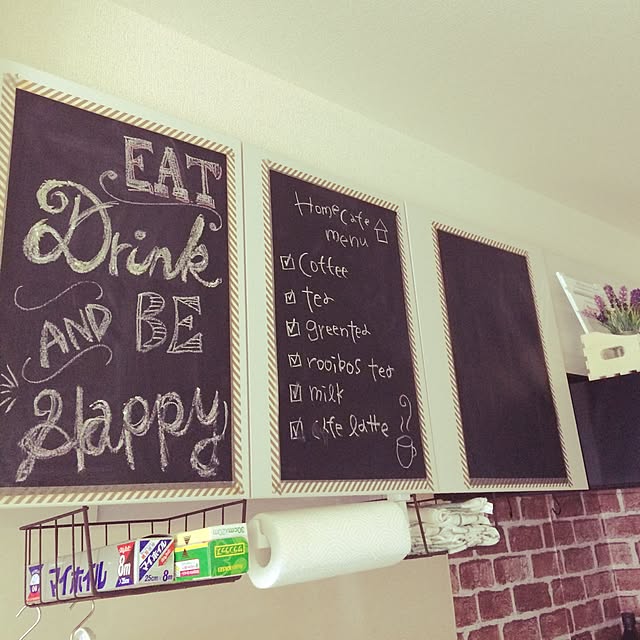 EAT
Drink
AND BE
Happy
Home Cafe
menu
Coffee
tea
greentea
rooibos tea
milk
cafe latte
マイホイル
8m
25cm×8m
30cm×20